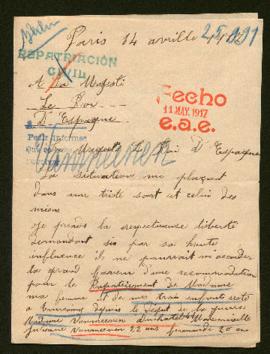 Paris 14 avrille
REPATRIACIÓN
CIVIL
A Sa Majesté
Le Roi
D'Espagne
Fecho
11 MAY. 1917
e.a.e.
Pedir informes
Vanneechen
Majesté Le Roi D'Espagne
La situation me plaçant
dans une triste sort et celui des
miens
je prends la respectueuse liberté
demandant si par sa haute
influence il ne pourrait m'accorder
la grand faveur d'une recommendation
pour le Rapatriement de Madame
ma femme et de mes trois enfants resté
a Tourcoing depuis le début de la guerre
Madame Vanneechen
22 ans 20 ans